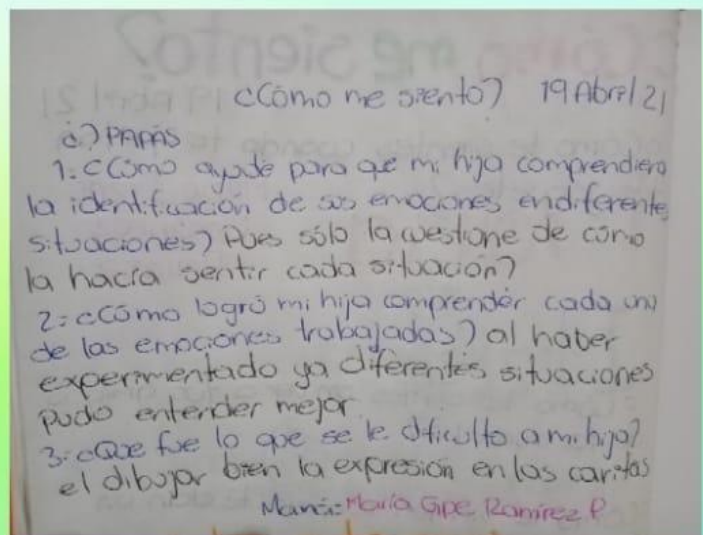 ¿Cómo me siento? 19 Abril 21
c) PAPÁS
1: ¿Cómo ayude para que mi hija comprendiera
la identificación de sus emociones en diferente
situaciones? Pues sólo la cuestione de cómo
la hacía sentir cada situación?
2: ¿Cómo logró mi hija comprender cada una
de las emociones trabajadas? al haber
experimentado ya diferentes situaciones
pudo entender mejor
3: ¿Que fue lo que se le dificulto a mi hijo?
el dibujar bien la expresión en las caritas
Mamá: María Gpe Ramírez P.